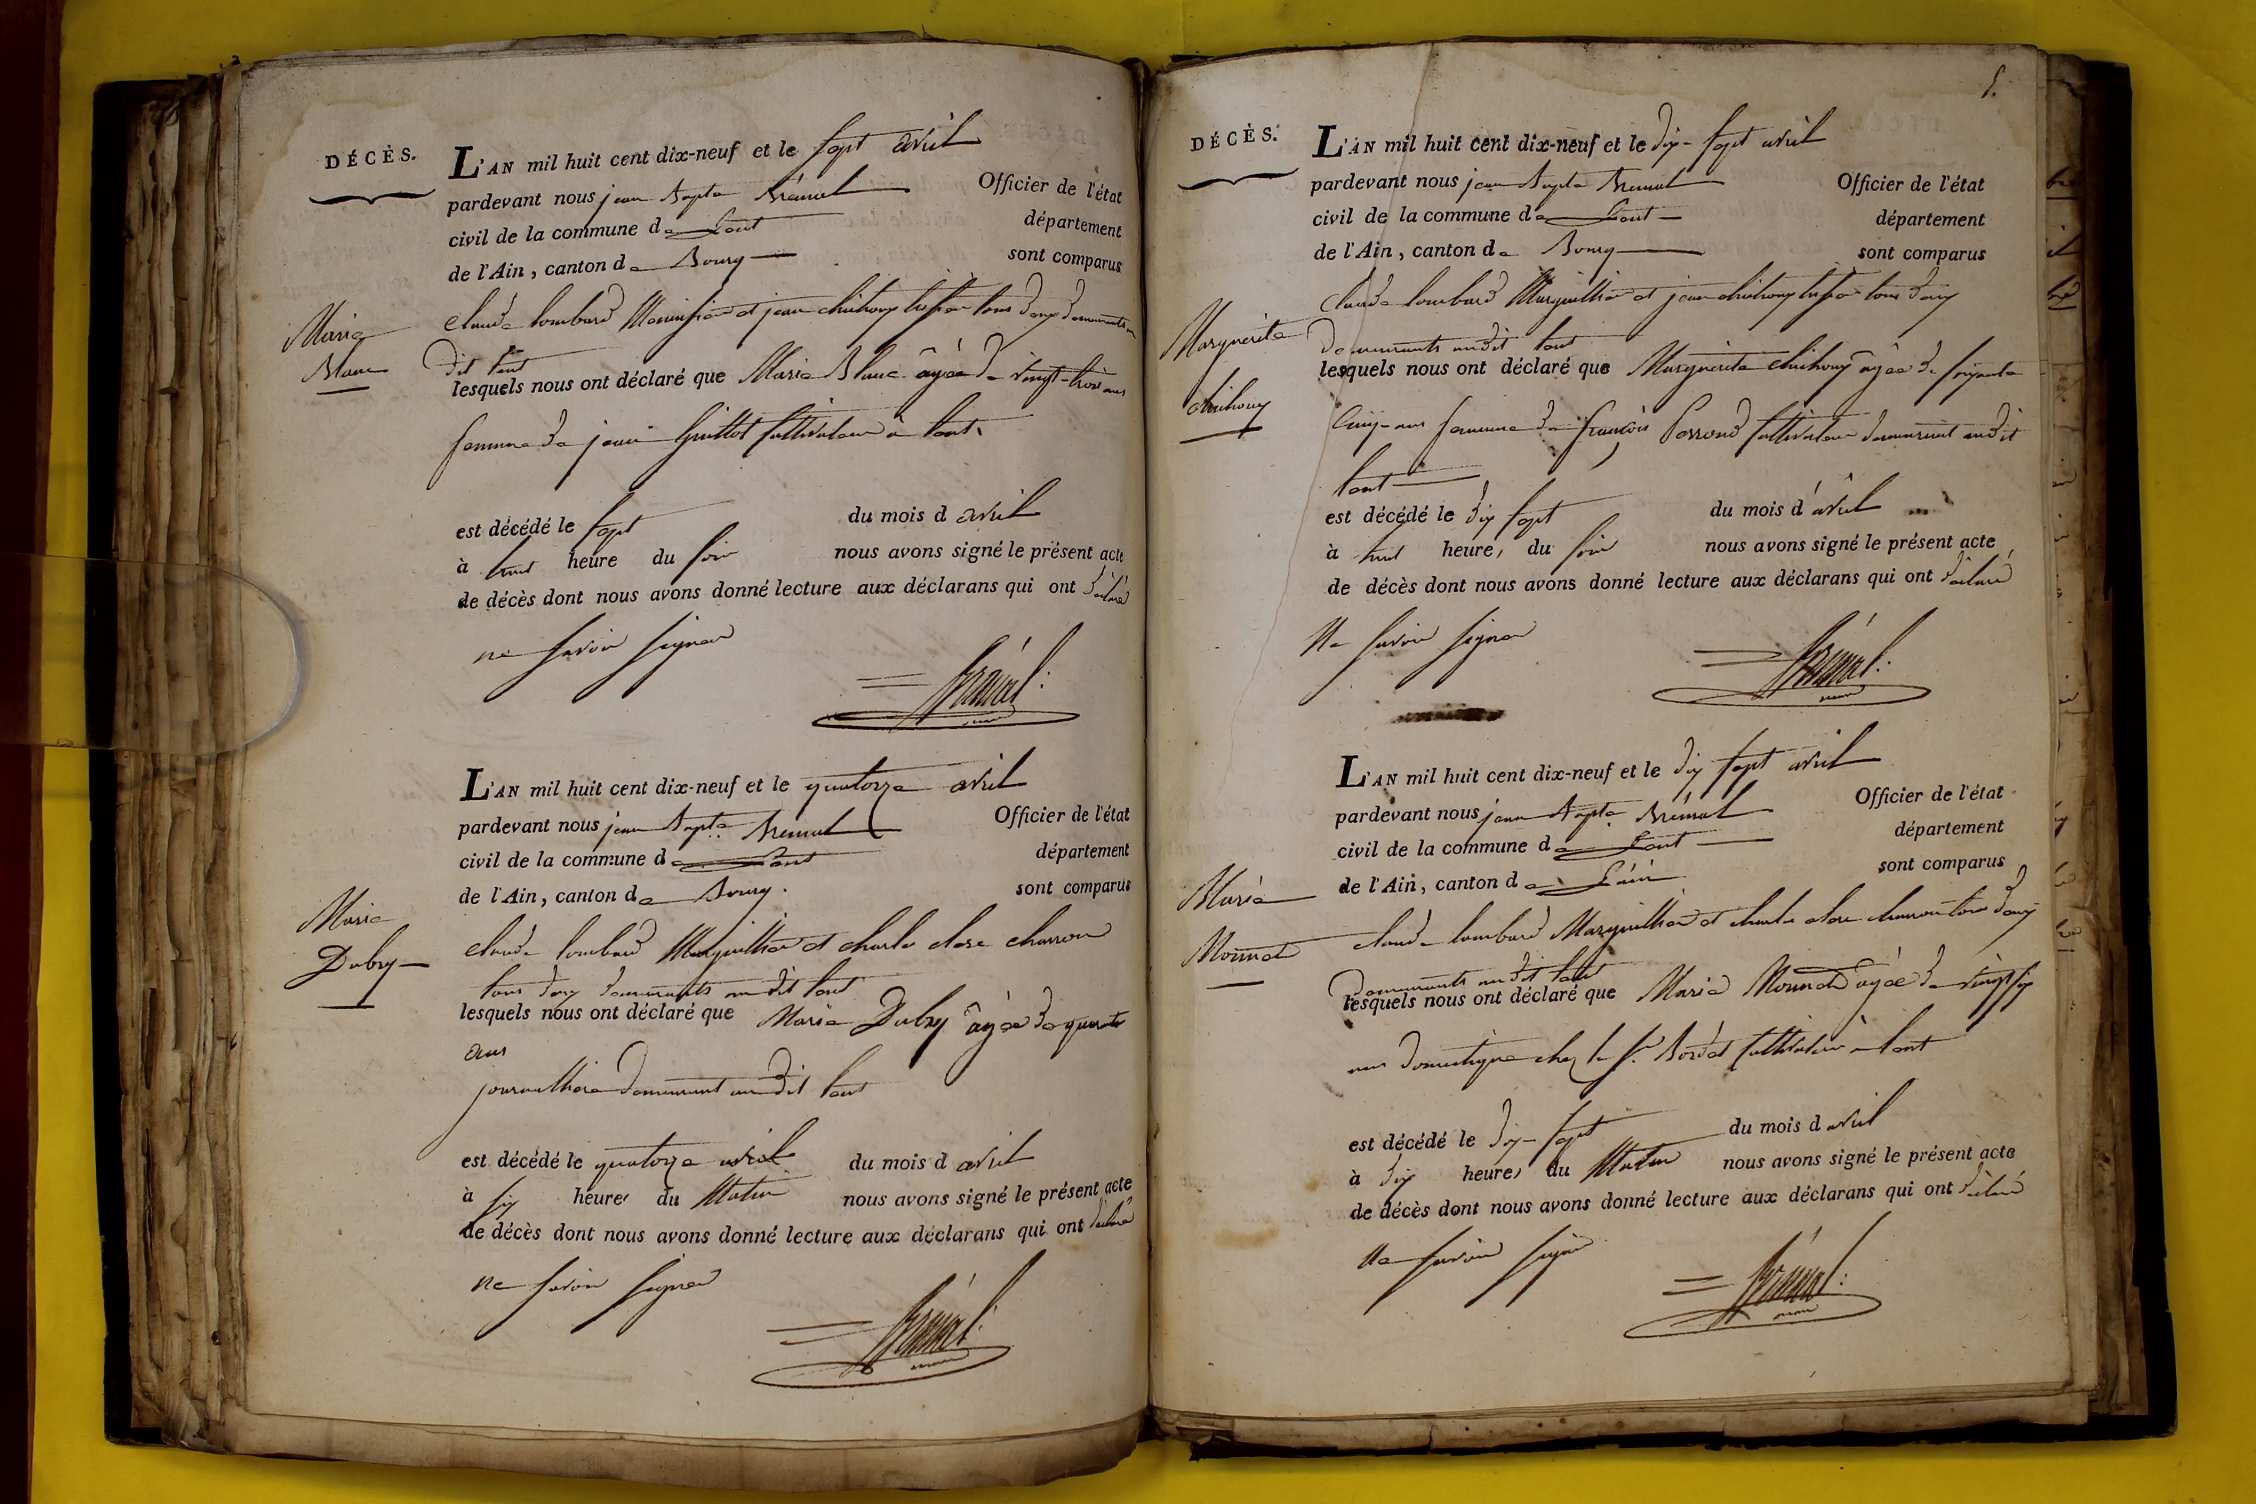 DÉCÈS.
L'AN mil huit cent dix-neuf et le sept avril
pardevant nous jean Bapte Officier de l'état
civil de la commune de département
de l'Ain, canton de Bourg sont comparus
Marie
Blanc
claude lombard et jean tous deux
dit
lesquels nous ont déclaré que Marie Blanc âgée de vingt-trois ans
femme de Guillot cultivateur à
est décédé le sept du mois d avril
à huit heure du soir nous avons signé le présent acte
de décès dont nous avons donné lecture aux déclarans qui ont déclaré
ne savoir signer
L'AN mil huit cent dix-neuf et le quatorze avril
pardevant nous jean Bapte Officier de l'état
civil de la commune de département
de l'Ain, canton de Bourg. sont comparus
Marie
Dubry
claude lombard Marguillier et charle clere charron
tous deux demeurants au dit
lesquels nous ont déclaré que Marie Dubry âgée de
ans
journallière demeurant au dit
est décédé le quatorze avril du mois d avril
à six heures du Matin nous avons signé le présent acte
de décès dont nous avons donné lecture aux déclarans qui ont déclaré
ne savoir signer
5.
DÉCÈS.
L'AN mil huit cent dix-neuf et le dix-sept avril
pardevant nous jean Bapte Officier de l'état
civil de la commune de département
de l'Ain, canton de Bourg sont comparus
Marguerite
chichoux
claude lombard Marguillier et jean chichoux tous deux
demeurants au dit
lesquels nous ont déclaré que Marguerite chichoux âgée de soixante
cinq ans femme de françois Perroud cultivateur demeurant au dit
est décédé le dix sept du mois d'avril
à huit heures du soir nous avons signé le présent acte
de décès dont nous avons donné lecture aux déclarans qui ont déclaré
Ne savoir signer
L'AN mil huit cent dix-neuf et le dix sept avril
pardevant nous jean Bapte Officier de l'état
civil de la commune de département
de l'Ain, canton de sont comparus
Marie
Monnet
claude lombard Marguillier et charle clere charron tous deux
demeurants au dit
lesquels nous ont déclaré que Marie Monnet âgée de vingt six
ans domestique chez le Sr. cultivateur à
est décédé le dix-sept du mois d avril
à dix heures du Matin nous avons signé le présent acte
de décès dont nous avons donné lecture aux déclarans qui ont déclaré
Ne savoir signer